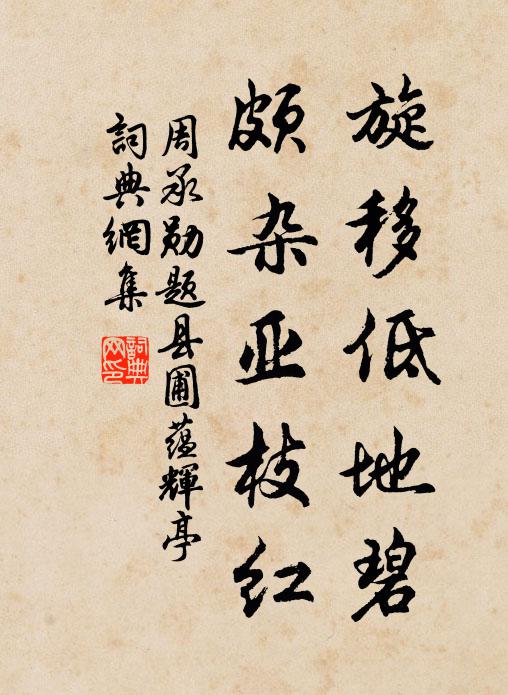 旋移低地碧
颇杂亚枝红
周承勋题县圃蕴輝亭
詞典網集
詞典网印